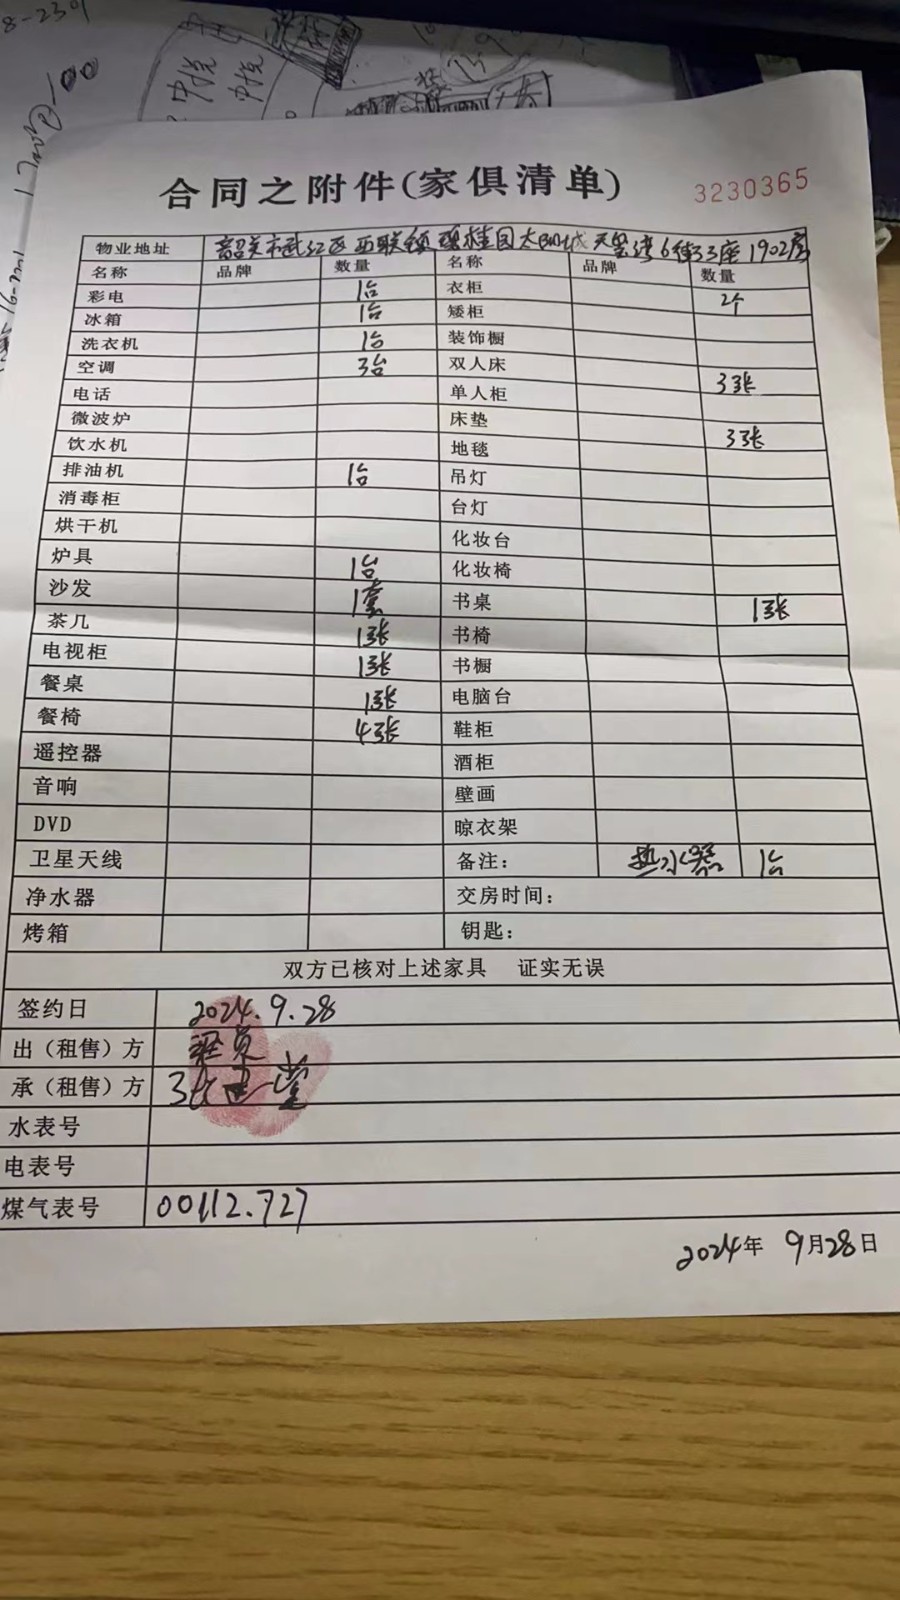 8-2301
中悦 中悦
合同之附件(家俱清单) 3230365
物业地址 韶关市武江区西联镇碧桂园太阳城天玺湾6街33座1902房
名称 品牌 数量 名称 品牌 数量
彩电 1台 衣柜 2个
冰箱 1台 矮柜
洗衣机 1台 装饰橱
空调 3台 双人床 3张
电话 单人柜
微波炉 床垫 3张
饮水机 地毯
排油机 1台 吊灯
消毒柜 台灯
烘干机 化妆台
炉具 1台 化妆椅
沙发 1套 书桌 1张
茶几 1张 书椅
电视柜 1张 书橱
餐桌 1张 电脑台
餐椅 4张 鞋柜
遥控器 酒柜
音响 壁画
DVD 晾衣架
卫星天线 备注: 热水器 1台
净水器 交房时间:
烤箱 钥匙:
双方已核对上述家具 证实无误
签约日 2024.9.28
出(租售)方
承(租售)方 张
水表号
电表号
煤气表号 00112.727
2024年 9月28日